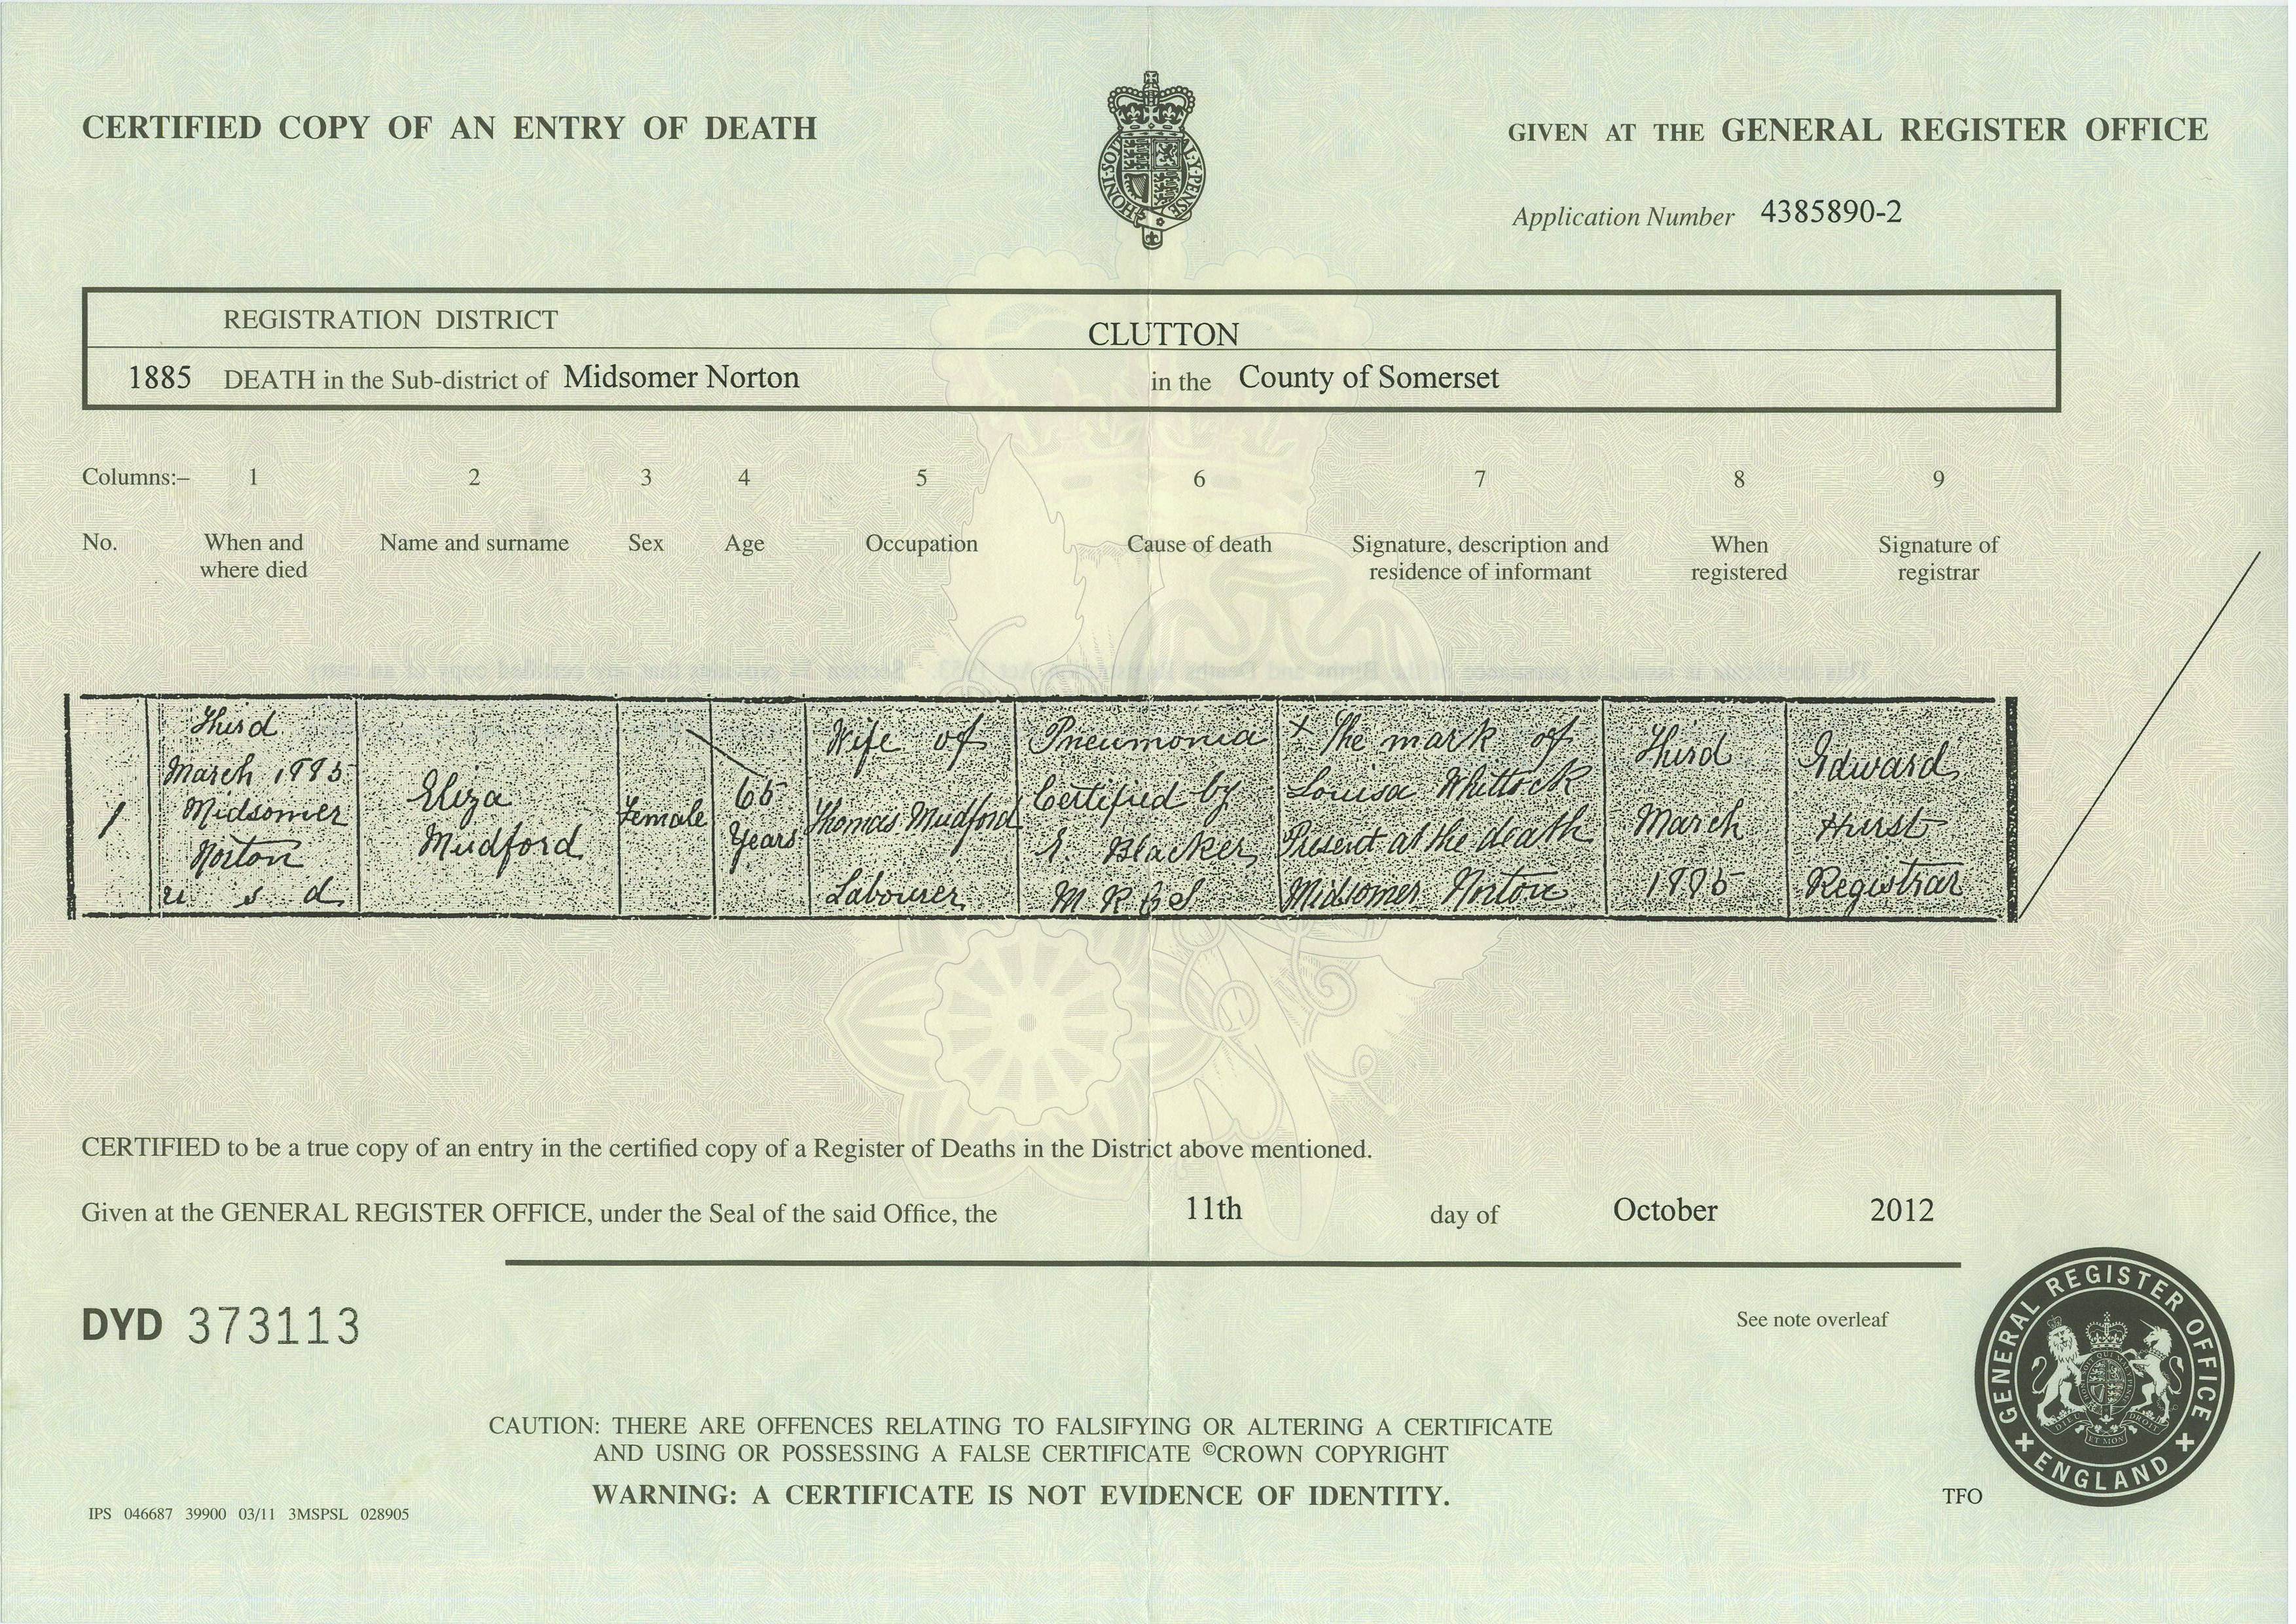 CERTIFIED COPY OF AN ENTRY OF DEATH
GIVEN AT THE GENERAL REGISTER OFFICE
HONI·SOIT
MAL·Y·PENSE
Application Number 4385890-2
REGISTRATION DISTRICT CLUTTON
1885 DEATH in the Sub-district of Midsomer Norton in the County of Somerset
Columns:– 1 2 3 4 5 6 7 8 9
No. When and where died Name and surname Sex Age Occupation Cause of death Signature, description and residence of informant When registered Signature of registrar
1
Third
March 1885
Midsomer
Norton
u s d
Eliza
Mudford
Female
65
Years
Wife of
Thomas Mudford
Labourer
Pneumonia
Certified by
Blacker
M R C S
X The mark of
Louisa Whittock
Present at the death
Midsomer Norton
Third
March
1885
Edward
Hurst
Registrar
CERTIFIED to be a true copy of an entry in the certified copy of a Register of Deaths in the District above mentioned.
Given at the GENERAL REGISTER OFFICE, under the Seal of the said Office, the 11th day of October 2012
DYD 373113
See note overleaf
GENERAL REGISTER OFFICE
ENGLAND
CAUTION: THERE ARE OFFENCES RELATING TO FALSIFYING OR ALTERING A CERTIFICATE
AND USING OR POSSESSING A FALSE CERTIFICATE ©CROWN COPYRIGHT
WARNING: A CERTIFICATE IS NOT EVIDENCE OF IDENTITY.
IPS 046687 39900 03/11 3MSPSL 028905
TFO